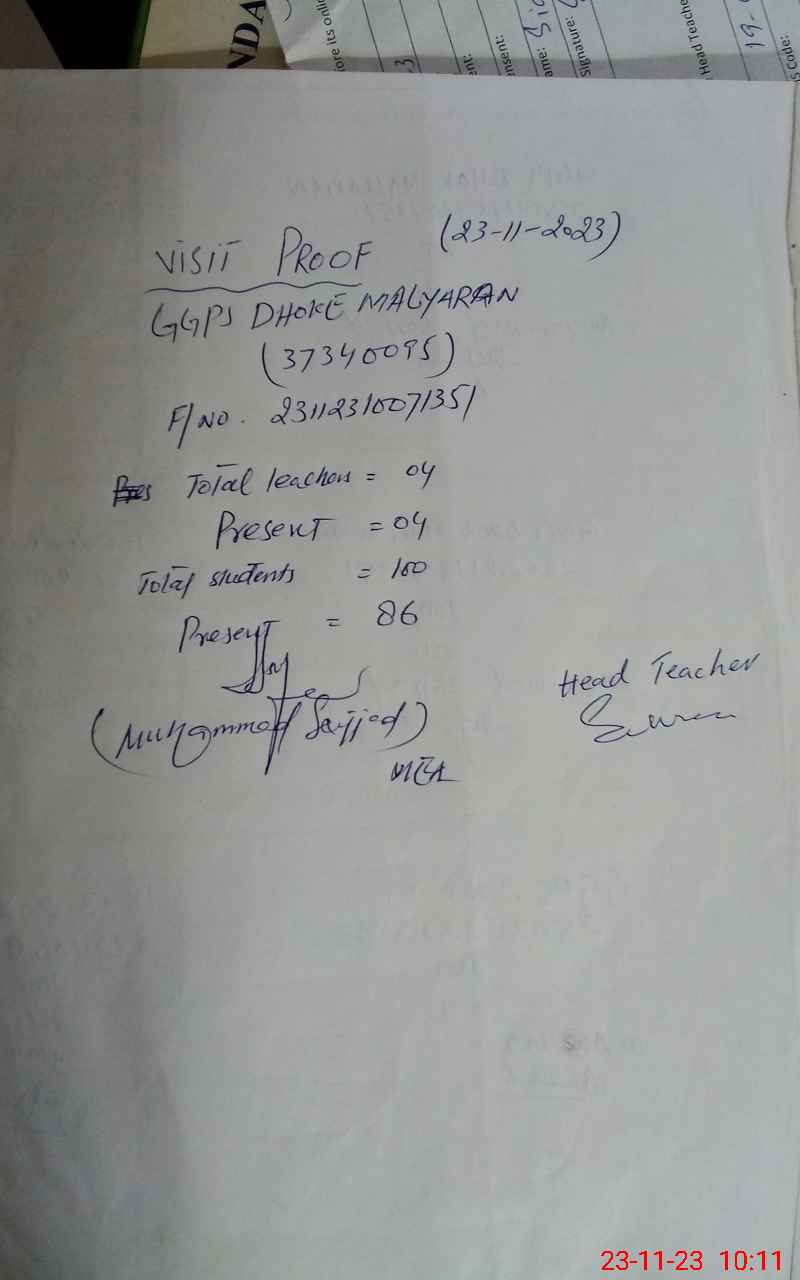 NDA
ore its onli
3
nt:
nsent:
ame:
Signature:
Head Teache
19-
S Code:
VISIT PROOF (23-11-2023)
GGPS DHOKE MALYARAN
(37340095)
F/NO. 23112310071351
Total teachers = 04
Present = 04
Total students = 100
Present = 86
Head Teacher
(Muhammad Sajjad)
MEA
23-11-23 10:11